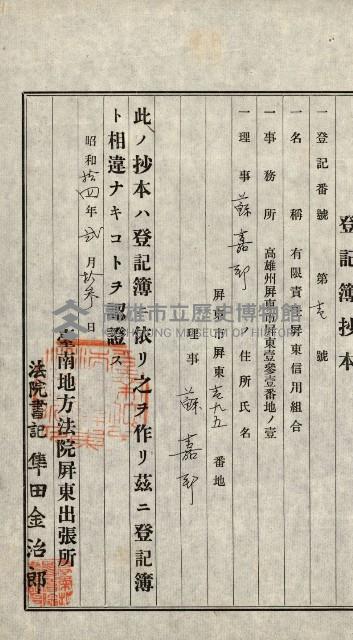 登記簿抄本
一登記番號 第壱號
一名稱 有限責任屏東信用組合
一事務所 高雄州屏東市屏東壹參壹番地ノ壹
一理事蘇嘉邦ノ住所氏名
屏東市屏東壱九五番地
理事 蘇嘉邦
此ノ抄本ハ登記簿ニ依リ之ヲ作リ茲ニ登記簿
ト相違ナキコトヲ認證ス
昭和拾四年貳月拾參日
臺南地方法院屏東出張所
法院書記 隼田金治郎
高雄市立歷史博物館
KAOHSIUNG MUSEUM OF HISTORY